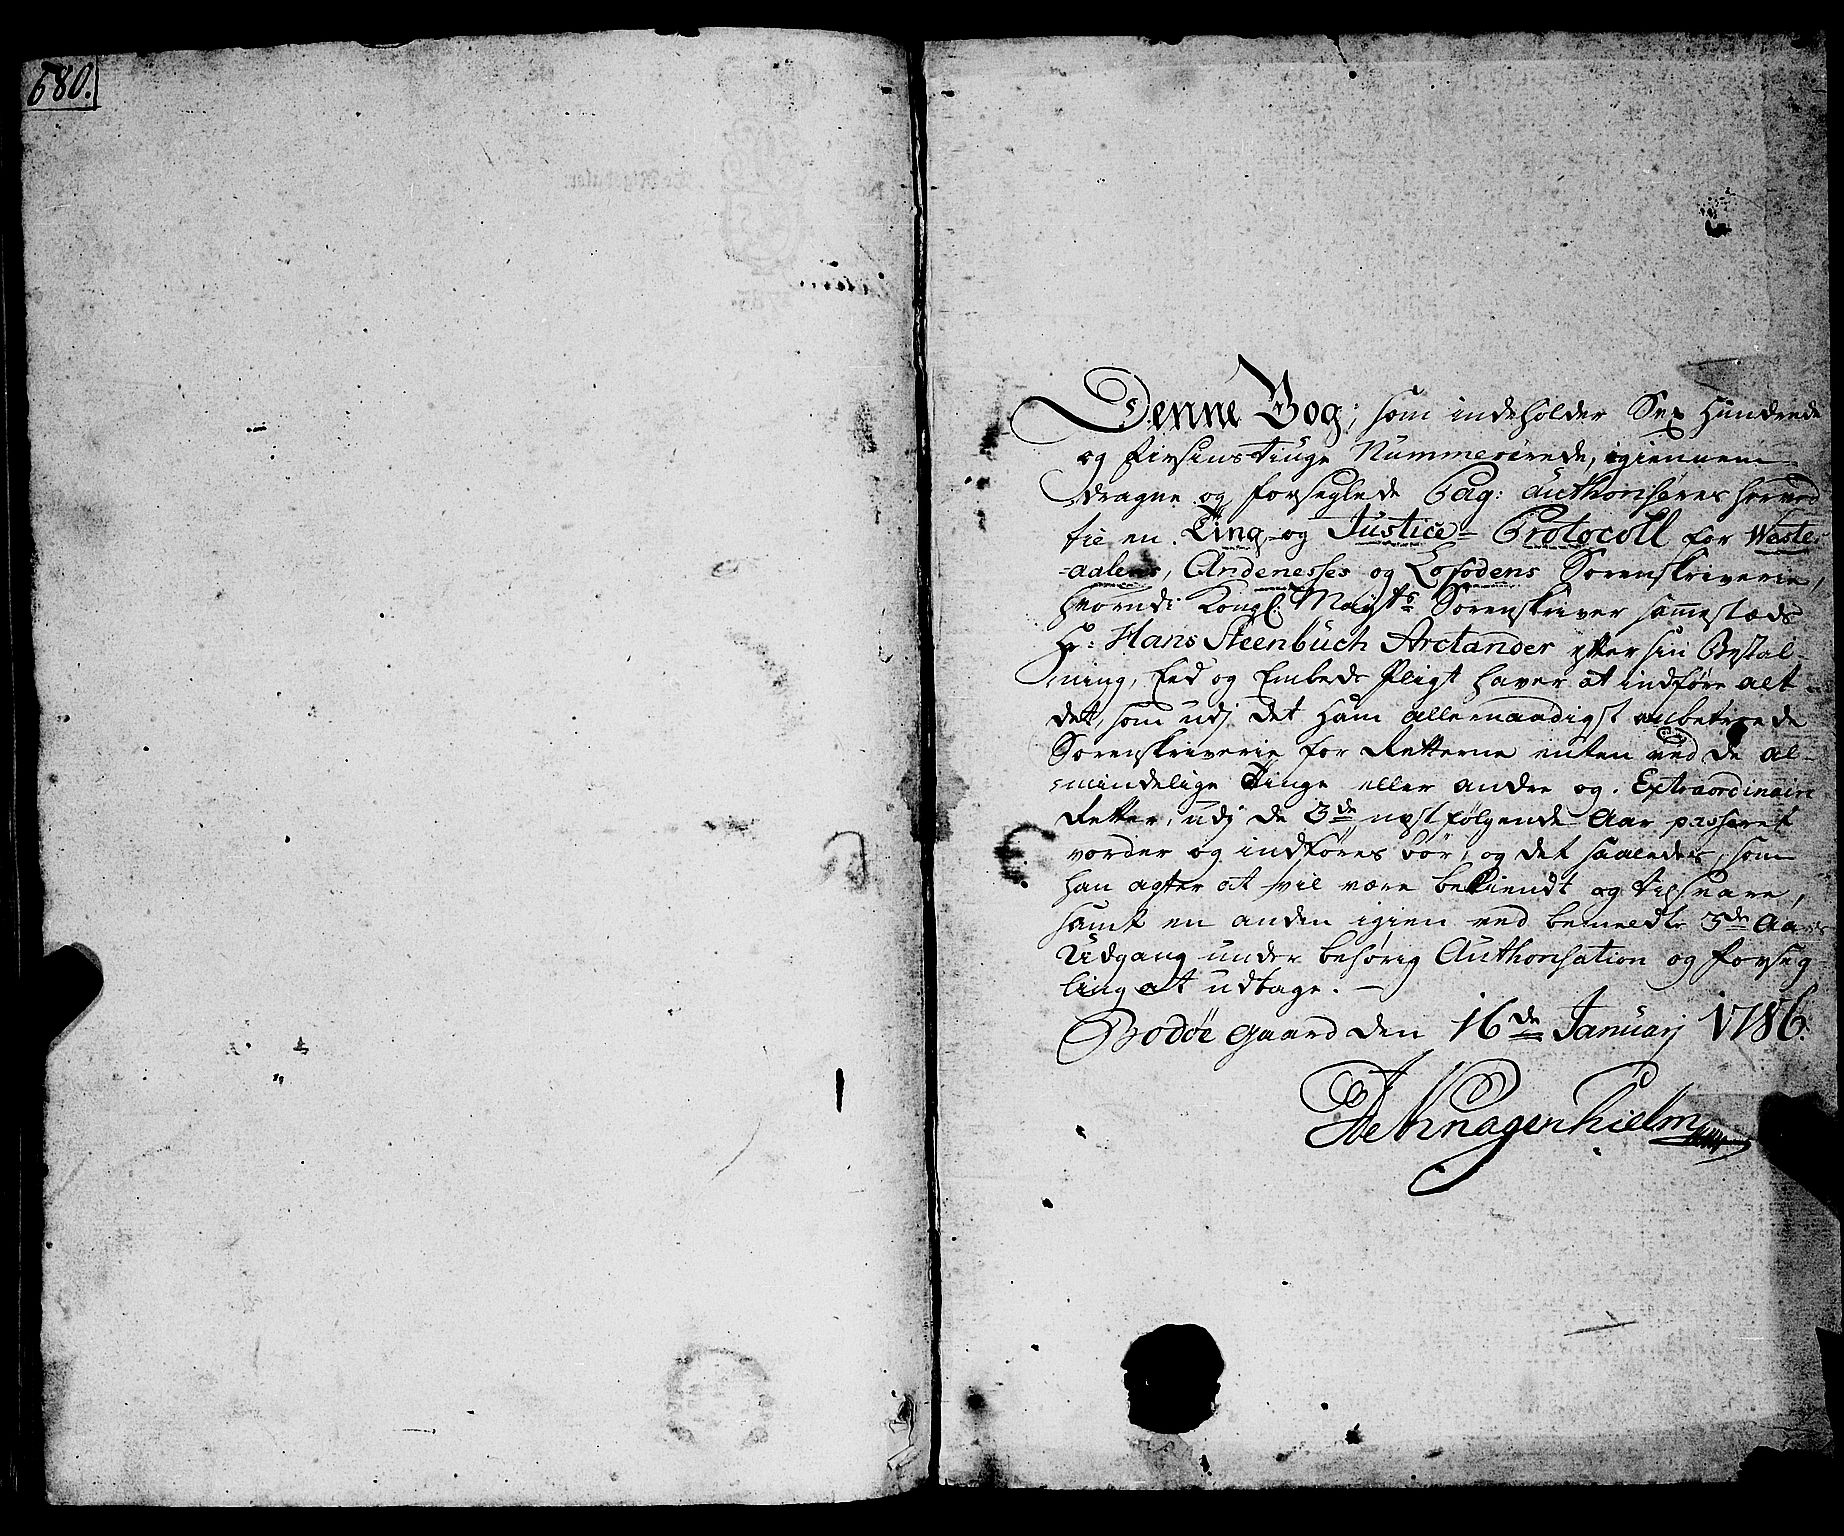 680.
Denne Bog; som indeholder Sex Hundrede
og firsinstiuge Nummererede, igiennem
dragne og forseglede Pag: authoriseres herved
til en Ting- og Justice- Protocoll for Weste
-aalens, Andenesses og Lofodens Sorenskriverie,
hvorudi Kongl: Mayts Sorenskriver sammestæds
Hr: Hans Steenbuch Arctander efter sin Bestal-
ning, Eed og Embeds Pligt haver at indføre alt
det, som udj det ham allernaadigst anbetroede
Sorenskriverie for Retterne enten ved de al-
mindelige Tinge eller andre og Extraordinaire
Retter, udj de 3de næstfølgende Aar passeret
vorder og indføres bør, og det saaledes, som
han agter at vil være bekiendt og tilsvare,
samt en anden igien ved bemeldte 3de Aars
Udgang under behørig Authorisation og Forseg-
ling at udtage. —
Bodøe gaard den 16de Januarj 1786.
de Knagenhielm